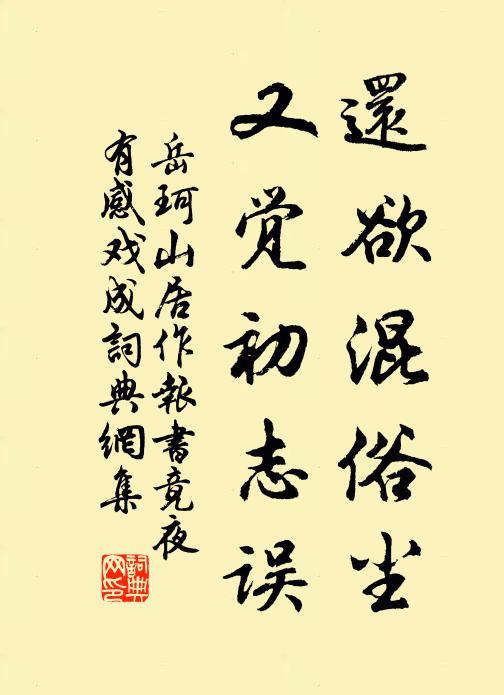 還欲混俗尘
又觉初志误
岳珂山居作報書竟夜
有感戏成詞典網集
詞典
网印